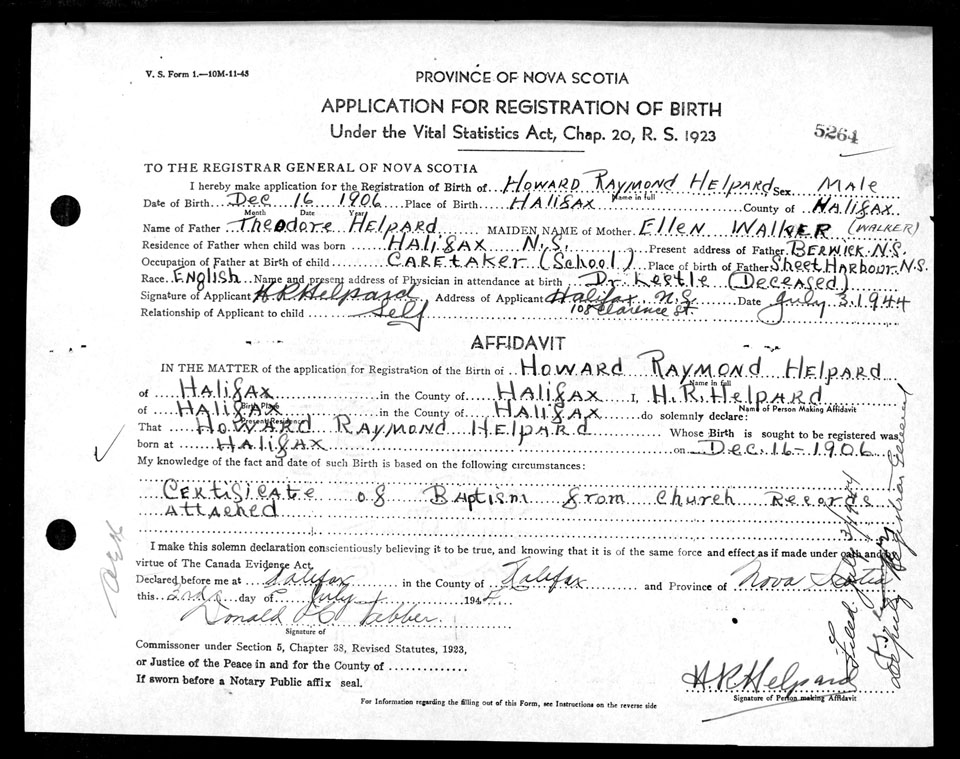 V. S. Form 1.—10M-11-43
PROVINCE OF NOVA SCOTIA
APPLICATION FOR REGISTRATION OF BIRTH
Under the Vital Statistics Act, Chap. 20, R. S. 1923
5264
TO THE REGISTRAR GENERAL OF NOVA SCOTIA
I hereby make application for the Registration of Birth of Howard Raymond Helpard Sex Male
Name in full
Date of Birth Dec 16 1906 Place of Birth Halifax County of Halifax
Month Date Year
Name of Father Theodore Helpard MAIDEN NAME of Mother Ellen Walker (WALKER)
Residence of Father when child was born Halifax N.S. Present address of Father Berwick N.S.
Occupation of Father at Birth of child Caretaker (School) Place of birth of Father Sheet Harbour N.S.
Race English Name and present address of Physician in attendance at birth Dr. (Deceased)
Signature of Applicant H R Helpard Address of Applicant Halifax N.S. Date July 3. 1944
108 Clarence St.
Relationship of Applicant to child Self
AFFIDAVIT
IN THE MATTER of the application for Registration of the Birth of Howard Raymond Helpard
Name in full
of Halifax in the County of Halifax I, H. R. Helpard
Birth Place Name of Person Making Affidavit
of Halifax in the County of Halifax do solemnly declare:
Present Residence
That Howard Raymond Helpard Whose Birth is sought to be registered was
born at Halifax on Dec. 16 - 1906
My knowledge of the fact and date of such Birth is based on the following circumstances:
Certificate of Baptism from Church Records
Attached
I make this solemn declaration conscientiously believing it to be true, and knowing that it is of the same force and effect as if made under oath and by
virtue of The Canada Evidence Act.
Declared before me at Halifax in the County of Halifax and Province of Nova Scotia
this 3rd day of July 194
Donald
Signature of
Commissoner under Section 5, Chapter 38, Revised Statutes, 1923,
or Justice of the Peace in and for the County of
If sworn before a Notary Public affix seal.
H R Helpard
Signature of Person making Affidavit
For Information regarding the filling out of this Form, see Instructions on the reverse side
Filed July 3/1944
Deputy Registrar General